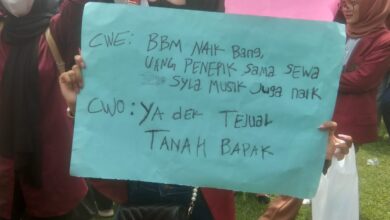 CWE: BBM NAIK Bang,
UANG PENEPIK SAMA SEWA
SYLA MUSIK JUGA NAIK
CWO: YA DEK TEJUAL
TANAH BAPAK